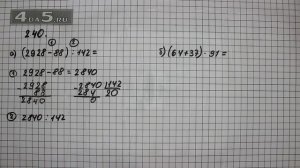 4a5.ru
240.
① ②
а) (2928-88):142=
① 2928-88=2840
2928
88
2840
2840 142
284 20
0
② 2840:142
б) (64+37)·91=